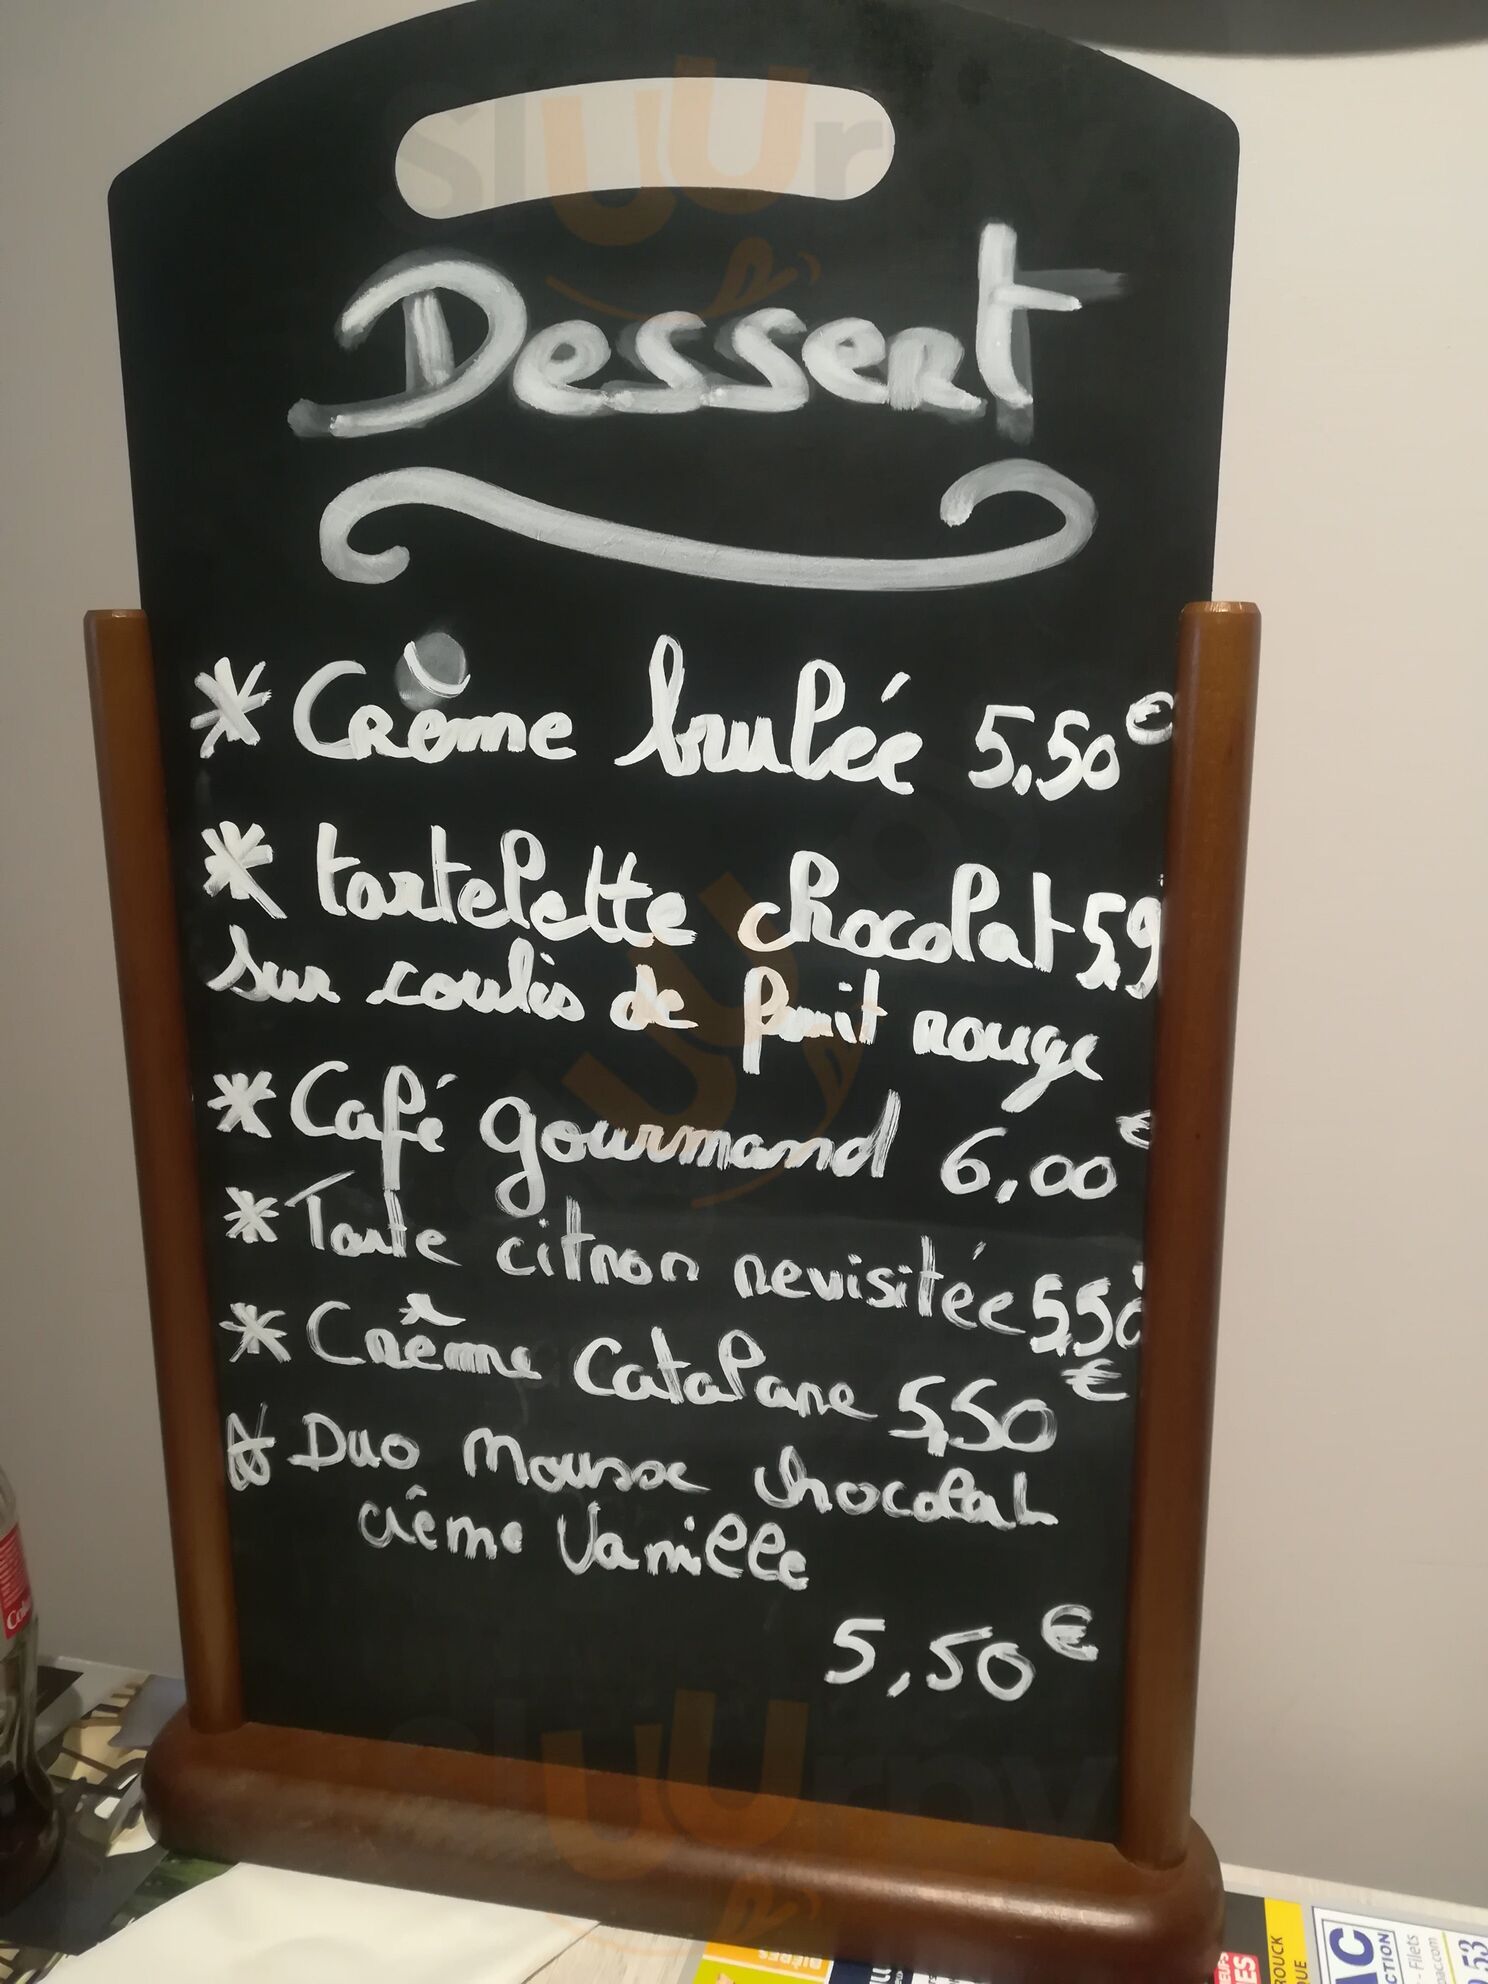 Dessert
* Crème brulée 5,50€
* tartelette chocolat 5,9
sur coulis de fruit rouge
* Café gourmand 6,00€
* Tarte citron revisitée 5,50
* Crême Catalane 5,50€
* Duo Mousse chocolat
crême Vanille
5,50€